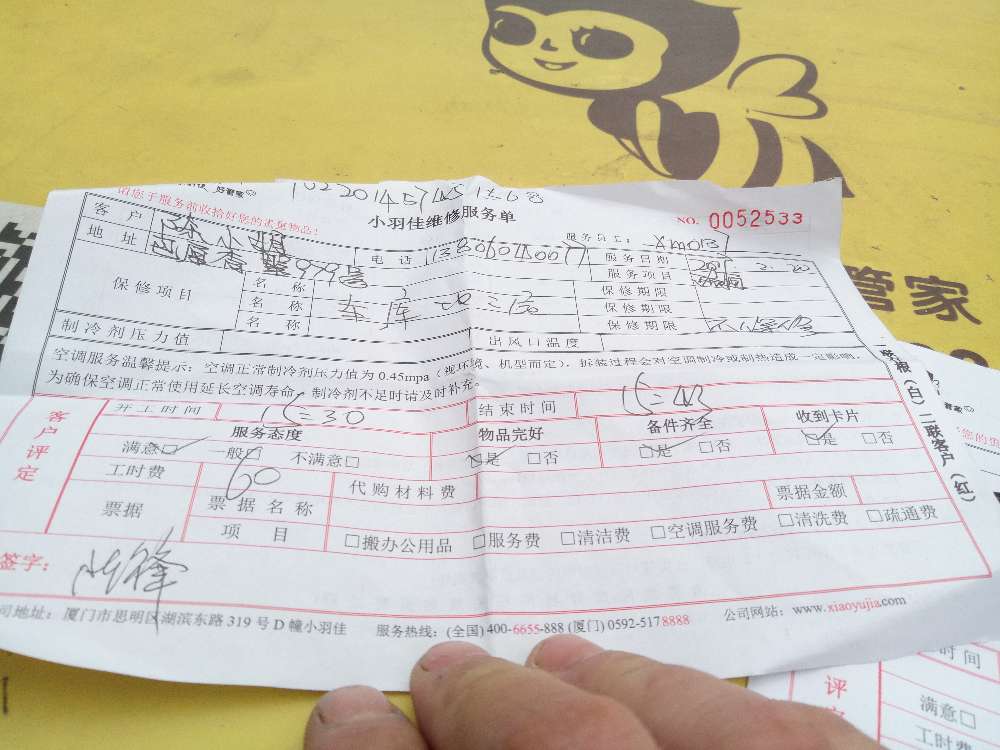 好管家
请您于服务前收拾好您的贵重物品!
小羽佳维修服务单
NO. 0052533
服务员工:
客户
地址 999号
电话
服务日期
服务项目
保修项目
名称
名称 车库
名称
保修期限
保修期限
保修期限
制冷剂压力值
出风口温度
空调服务温馨提示:空调正常制冷剂压力值为 0.45mpa(视环境、机型而定),拆装过程会对空调制冷或制热造成一定影响,
为确保空调正常使用延长空调寿命,制冷剂不足时请及时补充。
客户评定
开工时间 15:30
结束时间 15:43
服务态度
物品完好
备件齐全
收到卡片
满意□ 一般□ 不满意□
□是 □否
□是 □否
□是 □否
工时费 60
代购材料费
票据
票据名称
票据金额
项目
□搬办公用品 □服务费 □清洁费 □空调服务费 □清洗费 □疏通费
(白)二联客户(红)
签字:
司地址:厦门市思明区湖滨东路 319 号 D 幢小羽佳 服务热线:(全国) 400-6655-888 (厦门) 0592-5178888 公司网站:www.xiaoyujia.com
管家
时间
评
满意□
工时费